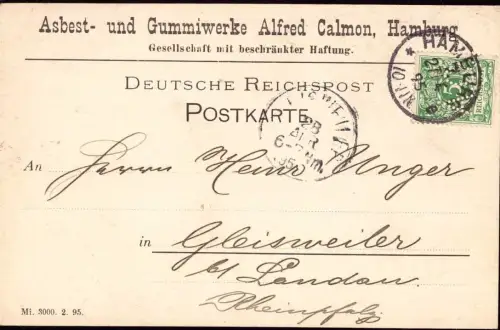 Asbest- und Gummiwerke Alfred Calmon, Hamburg
Gesellschaft mit beschränkter Haftung.
DEUTSCHE REICHSPOST
POSTKARTE
HAMBURG
28
95
An Herrn Heinr Unger
in Gleisweiler
b/ Landau.
Rheinpfalz
Mi. 3000. 2. 95.